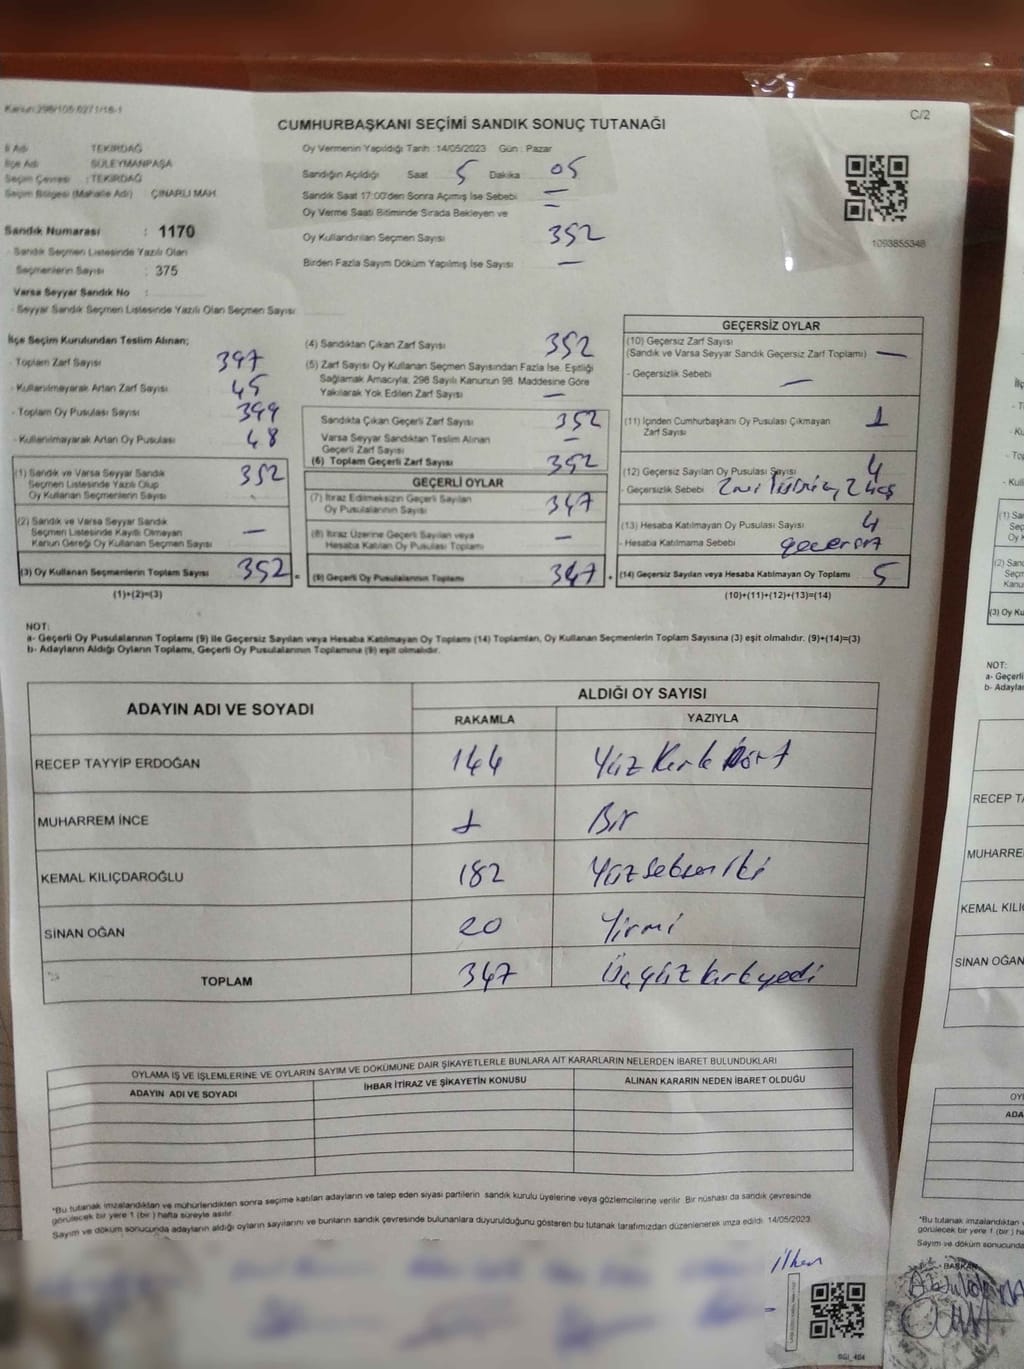 Kanun:298/105:6271/16-1
C/2
CUMHURBAŞKANI SEÇİMİ SANDIK SONUÇ TUTANAĞI
İl Adı : TEKİRDAĞ
İlçe Adı : SÜLEYMANPAŞA
Seçim Çevresi : TEKİRDAĞ
Seçim Bölgesi (Mahalle Adı) ÇINARLI MAH.
Sandık Numarası : 1170
- Sandık Seçmen Listesinde Yazılı Olan
Seçmenlerin Sayısı : 375
Varsa Seyyar Sandık No :
- Seyyar Sandık Seçmen Listesinde Yazılı Olan Seçmen Sayısı
Oy Vermenin Yapıldığı Tarih :14/05/2023 Gün : Pazar
Sandığın Açıldığı Saat 5 Dakika 05
Sandık Saat 17:00'den Sonra Açılmış İse Sebebi —
Oy Verme Saati Bitiminde Sırada Bekleyen ve —
Oy Kullandırılan Seçmen Sayısı 352
Birden Fazla Sayım Döküm Yapılmış İse Sayısı —
1093855348
İlçe Seçim Kurulundan Teslim Alınan;
- Toplam Zarf Sayısı 397
- Kullanılmayarak Artan Zarf Sayısı 45
- Toplam Oy Pusulası Sayısı 399
- Kullanılmayarak Artan Oy Pusulası 48
(1) Sandık ve Varsa Seyyar Sandık
Seçmen Listesinde Yazılı Olup
Oy Kullanan Seçmenlerin Sayısı 352
(2) Sandık ve Varsa Seyyar Sandık
Seçmen Listesinde Kayıtlı Olmayan
Kanun Gereği Oy Kullanan Seçmen Sayısı —
(3) Oy Kullanan Seçmenlerin Toplam Sayısı 352 =
(1)+(2)=(3)
(4) Sandıktan Çıkan Zarf Sayısı 352
(5) Zarf Sayısı Oy Kullanan Seçmen Sayısından Fazla İse, Eşitliği
Sağlamak Amacıyla; 298 Sayılı Kanunun 98. Maddesine Göre
Yakılarak Yok Edilen Zarf Sayısı —
Sandıkta Çıkan Geçerli Zarf Sayısı 352
Varsa Seyyar Sandıktan Teslim Alınan
Geçerli Zarf Sayısı —
(6) Toplam Geçerli Zarf Sayısı 352
GEÇERLİ OYLAR
(7) İtiraz Edilmeksizin Geçerli Sayılan
Oy Pusulalarının Sayısı 347
(8) İtiraz Üzerine Geçerli Sayılan veya
Hesaba Katılan Oy Pusulaları Toplamı —
(9) Geçerli Oy Pusulalarının Toplamı 347 +
GEÇERSİZ OYLAR
(10) Geçersiz Zarf Sayısı
(Sandık ve Varsa Seyyar Sandık Geçersiz Zarf Toplamı) —
- Geçersizlik Sebebi —
(11) İçinden Cumhurbaşkanı Oy Pusulası Çıkmayan
Zarf Sayısı 1
(12) Geçersiz Sayılan Oy Pusulası Sayısı 4
- Geçersizlik Sebebi
(13) Hesaba Katılmayan Oy Pusulası Sayısı 4
- Hesaba Katılmama Sebebi geçersiz
(14) Geçersiz Sayılan veya Hesaba Katılmayan Oy Toplamı 5
(10)+(11)+(12)+(13)=(14)
NOT:
a- Geçerli Oy Pusulalarının Toplamı (9) ile Geçersiz Sayılan veya Hesaba Katılmayan Oy Toplamı (14) Toplamları, Oy Kullanan Seçmenlerin Toplam Sayısına (3) eşit olmalıdır. (9)+(14)=(3)
b- Adayların Aldığı Oyların Toplamı, Geçerli Oy Pusulalarının Toplamına (9) eşit olmalıdır.
ADAYIN ADI VE SOYADI
ALDIĞI OY SAYISI
RAKAMLA YAZIYLA
RECEP TAYYİP ERDOĞAN 144 Yüz Kırk Dört
MUHARREM İNCE 1 Bir
KEMAL KILIÇDAROĞLU 182 Yüzseksen iki
SİNAN OĞAN 20 Yirmi
TOPLAM 347 Üçyüz kırkyedi
OYLAMA İŞ VE İŞLEMLERİNE VE OYLARIN SAYIM VE DÖKÜMÜNE DAİR ŞİKAYETLERLE BUNLARA AİT KARARLARIN NELERDEN İBARET BULUNDUKLARI
ADAYIN ADI VE SOYADI İHBAR İTİRAZ VE ŞİKAYETİN KONUSU ALINAN KARARIN NEDEN İBARET OLDUĞU
*Bu tutanak imzalandıktan ve mühürlendikten sonra seçime katılan adayların ve talep eden siyasi partilerin sandık kurulu üyelerine veya gözlemcilerine verilir. Bir nüshası da sandık çevresinde
görülecek bir yere 1 (bir) hafta süreyle asılır.
Sayım ve döküm sonucunda adayların aldığı oyların sayılarını ve bunların sandık çevresinde bulunanlara duyurulduğunu gösteren bu tutanak tarafımızdan düzenlenerek imza edildi. 14/05/2023
İlken
SGI_464
NOT:
a- Geçerli
b- Adayla
RECEP TA
MUHARRE
KEMAL KILI
SİNAN OĞAN
OY
ADA
*Bu tutanak imzalandıktan
görülecek bir yere 1 (bir) ha
Sayım ve döküm sonucunda
BAŞKAN